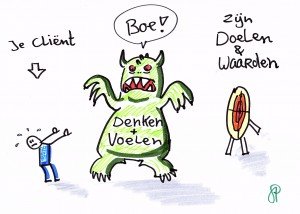 Je Cliënt
Boe!
Zijn
Doelen
&
Waarden
Denken
+
Voelen